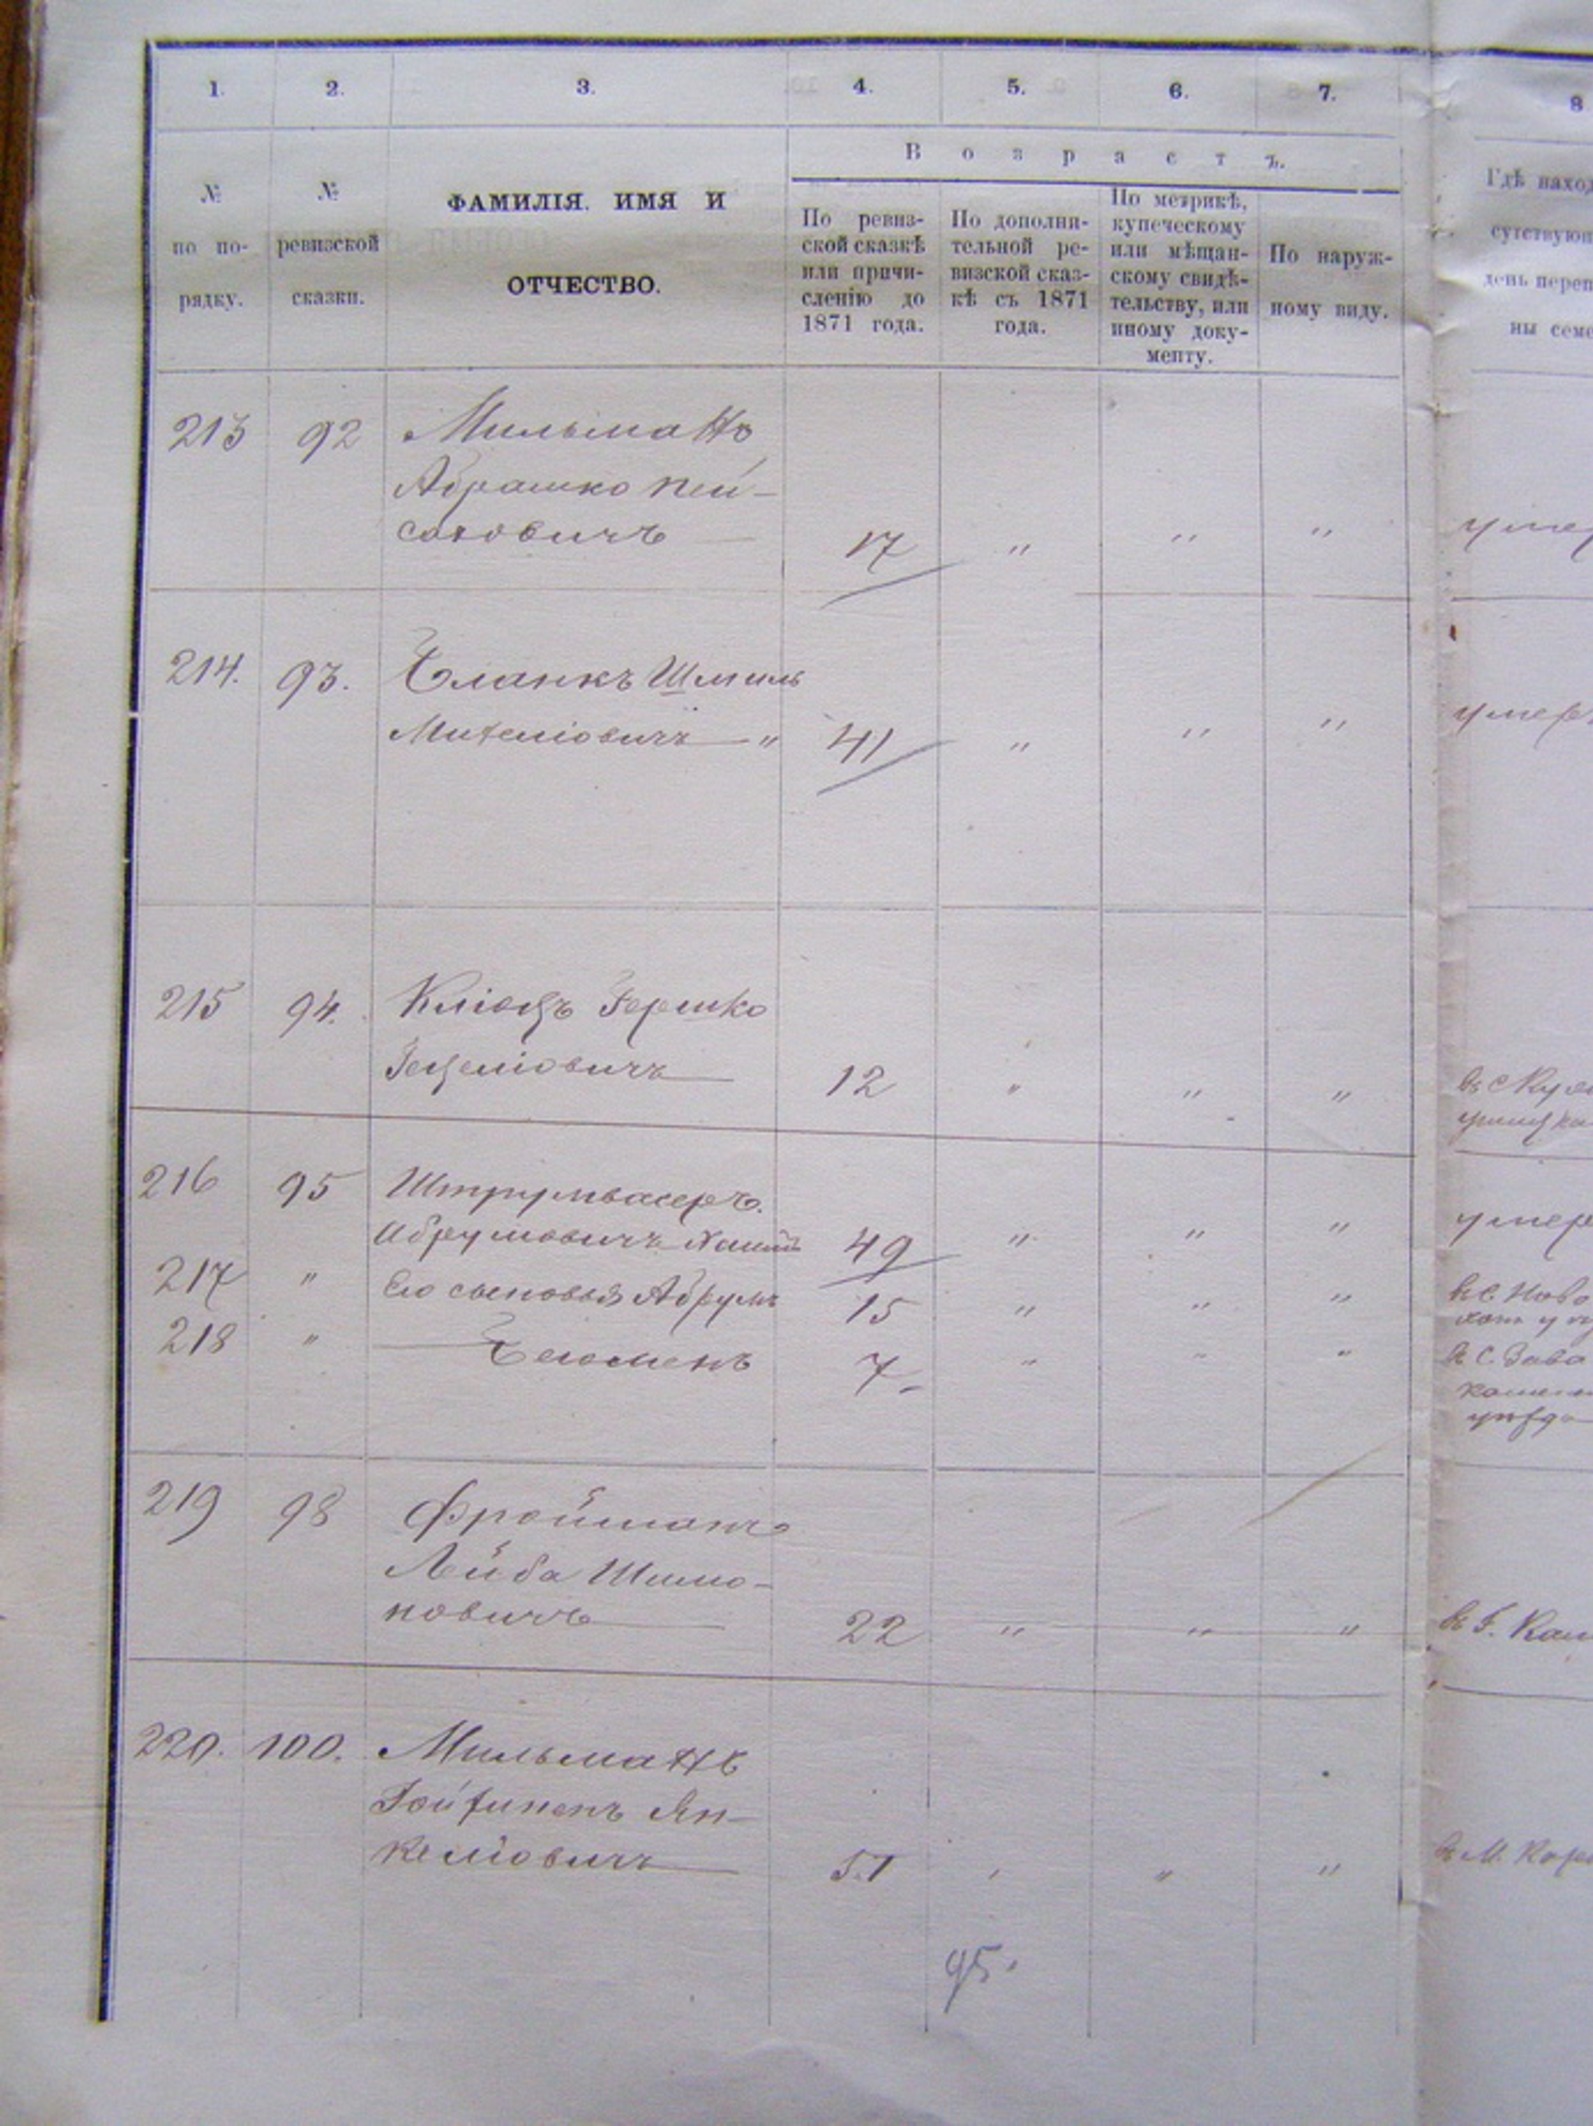 1. 2. 3. 4. 5. 6. 7. 8
В о з р а с т ъ.
№ по по-рядку.
№ ревизской сказки.
ФАМИЛІЯ. ИМЯ И
ОТЧЕСТВО.
По ревиз-
ской сказкѣ
или причи-
сленію до
1871 года.
По дополни-
тельной ре-
визской сказ-
кѣ съ 1871
года.
По метрикѣ,
купеческому
или мѣщан-
скому свидѣ-
тельству, или
иному доку-
менту.
По наруж-
ному виду.
Гдѣ наход
сутствующ
день переп
ны семе
213 92 Мильманъ
Абрашко Пей-
саховичъ 17 " " " умер
214. 93. Бланкъ Шмиль
Михеліовичъ " 41 " " " умер
215 94. Гершко
12 " " " въ с
216 95 Штрумвасеръ
Абрумовичъ 49 " " " умер
217 " Его сыновья Абрумъ 15 " " " въ с. Ново
218 " 7 " " " въ с. Зава
219 98 Фройманъ
Лейба Шимо-
новичъ 22 " " " въ г. Кам
220. 100. Мильманъ
Ян-
келіовичъ 51 " " " въ м.
95.